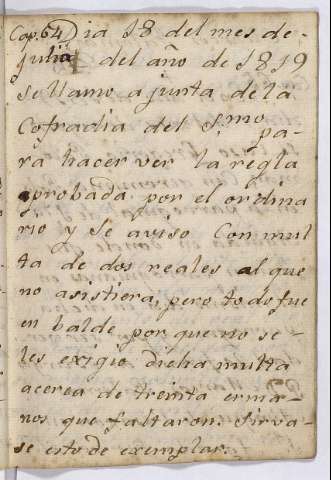 Cap. 64) Dia 18 del mes de-
julia del año de 1819
se llamo a junta de la
Cofradia del S.mo pa-
ra hacer ver la regla
aprobada por el ordina
rio y se aviso Con mul
ta de dos reales al que
no asistiera, pero todo fue
en balde por que no se-
les exigio dicha multa
acerca de treinta erma-
nos que faltaron. Sirva-
se esto de exemplar.